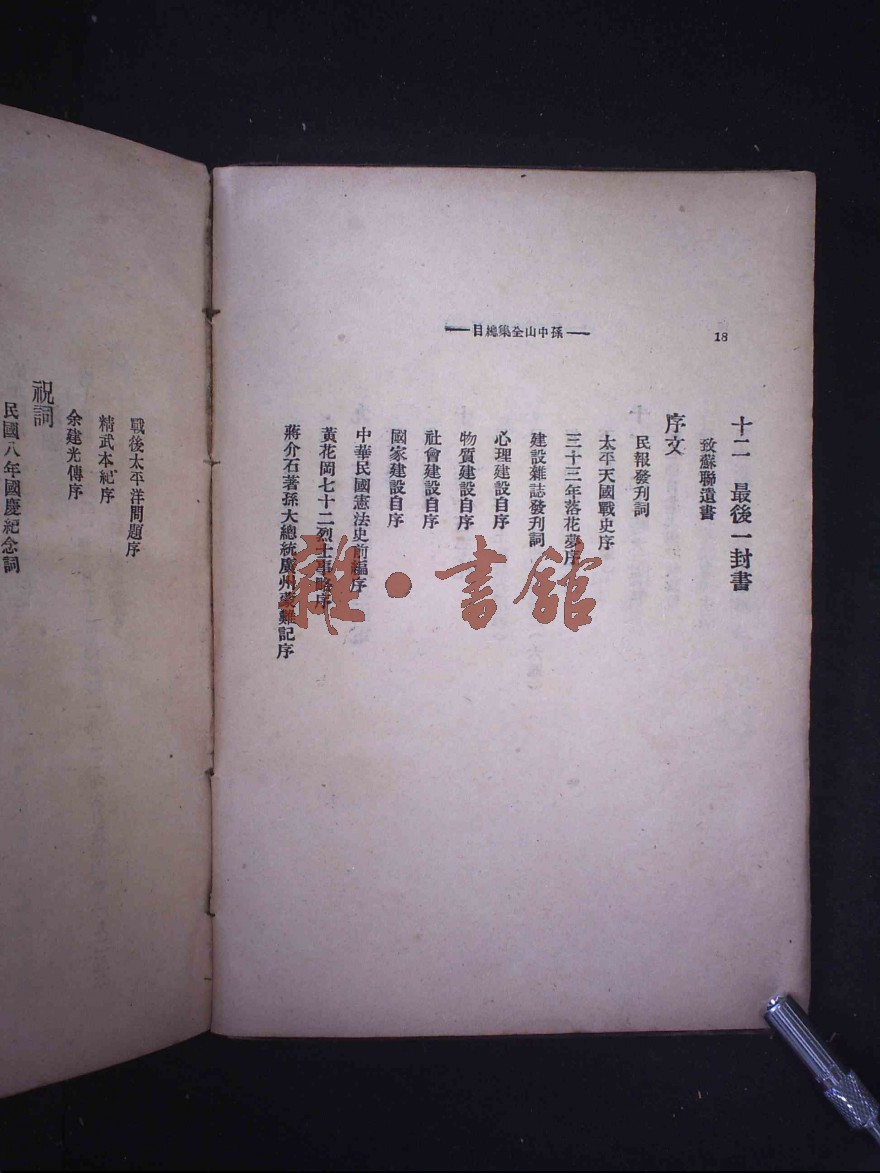 18
孫中山全集總目
十二　最後一封書
致蘇聯遺書
序文
民報發刊詞
太平天國戰史序
三十三年落花夢序
建設雜誌發刊詞
心理建設自序
物質建設自序
社會建設自序
國家建設自序
中華民國憲法史前編序
黃花岡七十二烈士事略序
蔣介石著孫大總統廣州蒙難記序
戰後太平洋問題序
精武本紀序
余建光傳序
祝詞
民國八年國慶紀念詞
雜·書館